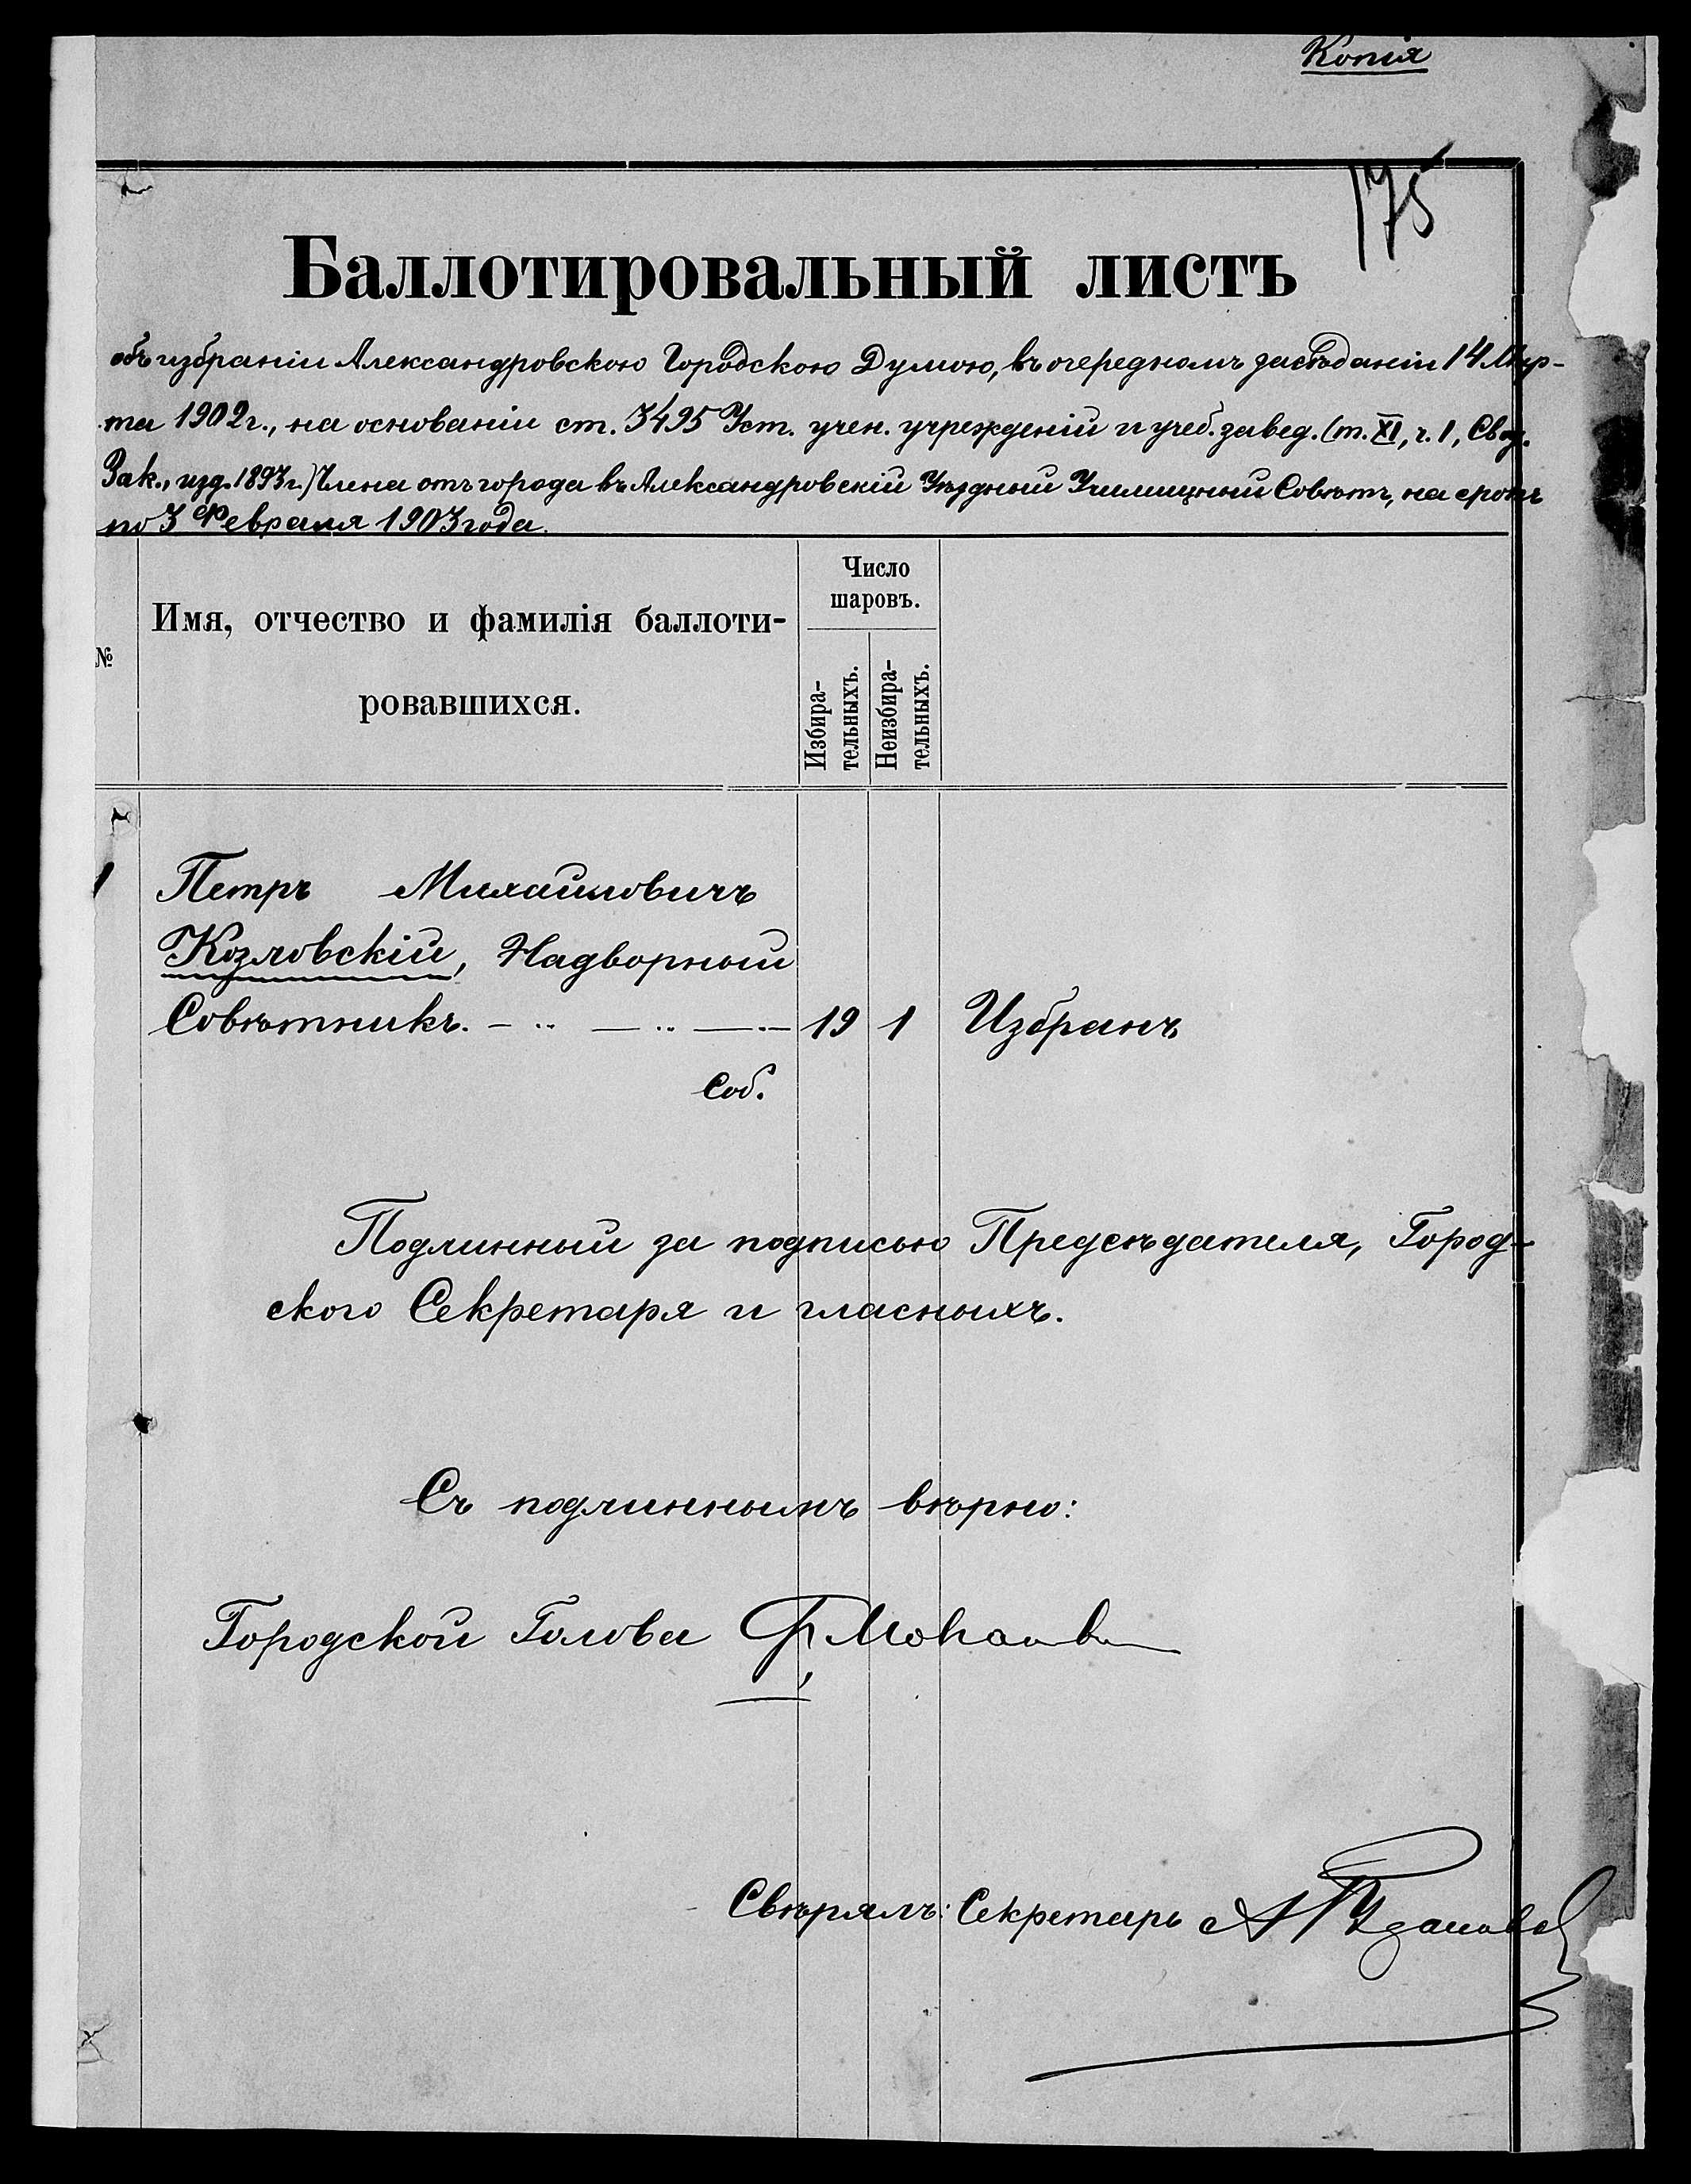 Копія
175
Баллотировальный листъ
объ избраніи Александровскою Городскою Думою, въ очередномъ засѣданіи 14 Мар-
та 1902 г., на основаніи ст. 3495 Уст. учен. учрежденій и учеб. завед. (т. XI, ч. 1, Свод.
Зак., изд. 1893 г.) Члена отъ города въ Александровскій Уѣздный Училищный Совѣтъ, на срокъ
по 3 Февраля 1903 года.
№
Имя, отчество и фамилія баллоти-
ровавшихся.
Число
шаровъ.
Избира-
тельныхъ.
Неизбира-
тельныхъ.
1 Петръ Михайловичъ
Козловскій, Надворный
Совѣтникъ. 19 1 Избранъ
Соб.
Подлинный за подписью Предсѣдателя, Город-
ского Секретаря и гласныхъ.
Съ подлиннымъ вѣрно:
Городской Голова Ф.
Свѣрялъ: Секретарь